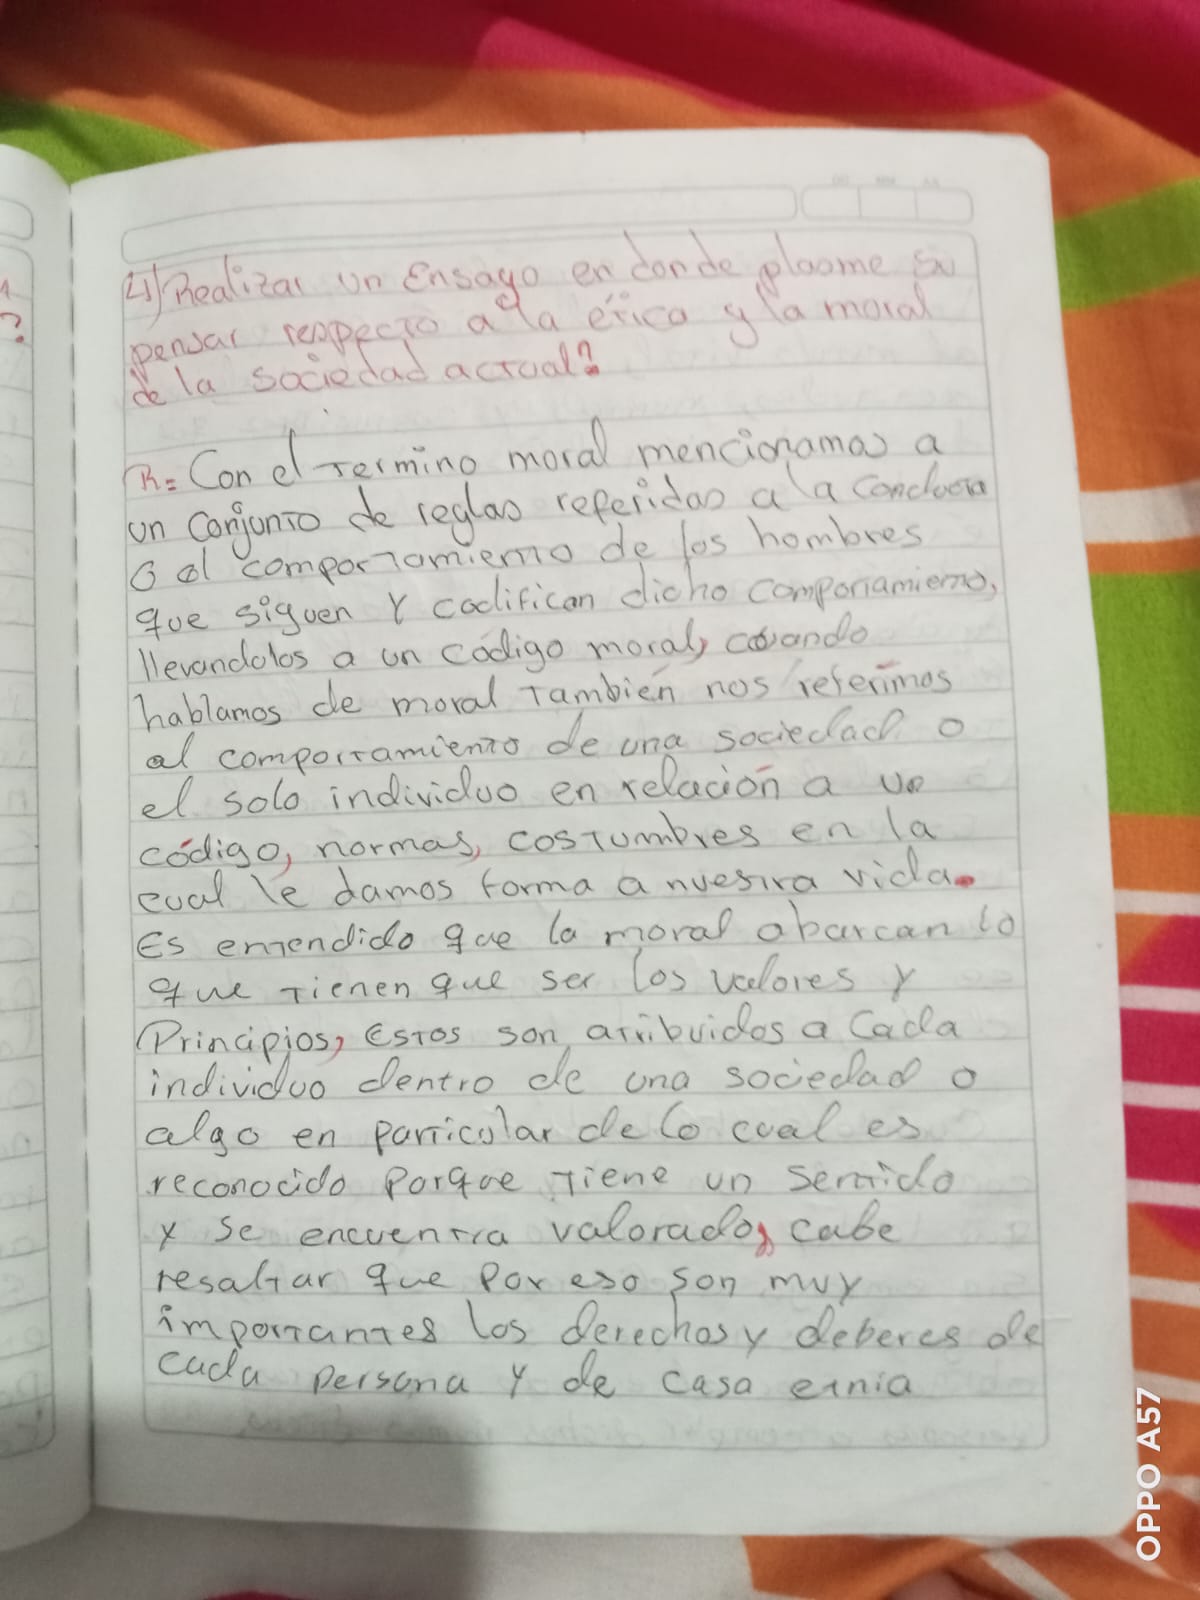 4) Realizar un Ensayo en donde plasme su
pensar respecto a la ética y la moral
de la sociedad actual?
R= Con el termino moral mencionamos a
un Conjunto de reglas referidas a la Conducta
O al comportamiento de los hombres
que siguen y codifican dicho comportamiento,
llevandolos a un código moral, cuando
hablamos de moral también nos referimos
al comportamiento de una sociedad o
el solo individuo en relación a un
código, normas, costumbres en la
cual le damos forma a nuestra vida.
Es entendido que la moral abarcan lo
que tienen que ser los valores y
Principios, Estos son atribuidos a Cada
individuo dentro de una sociedad o
algo en particular de lo cual es
reconocido Porque tiene un sentido
y se encuentra valorado, cabe
resaltar que Por eso son muy
importantes los derechos y deberes de
cada persona y de casa etnia
OPPO A57